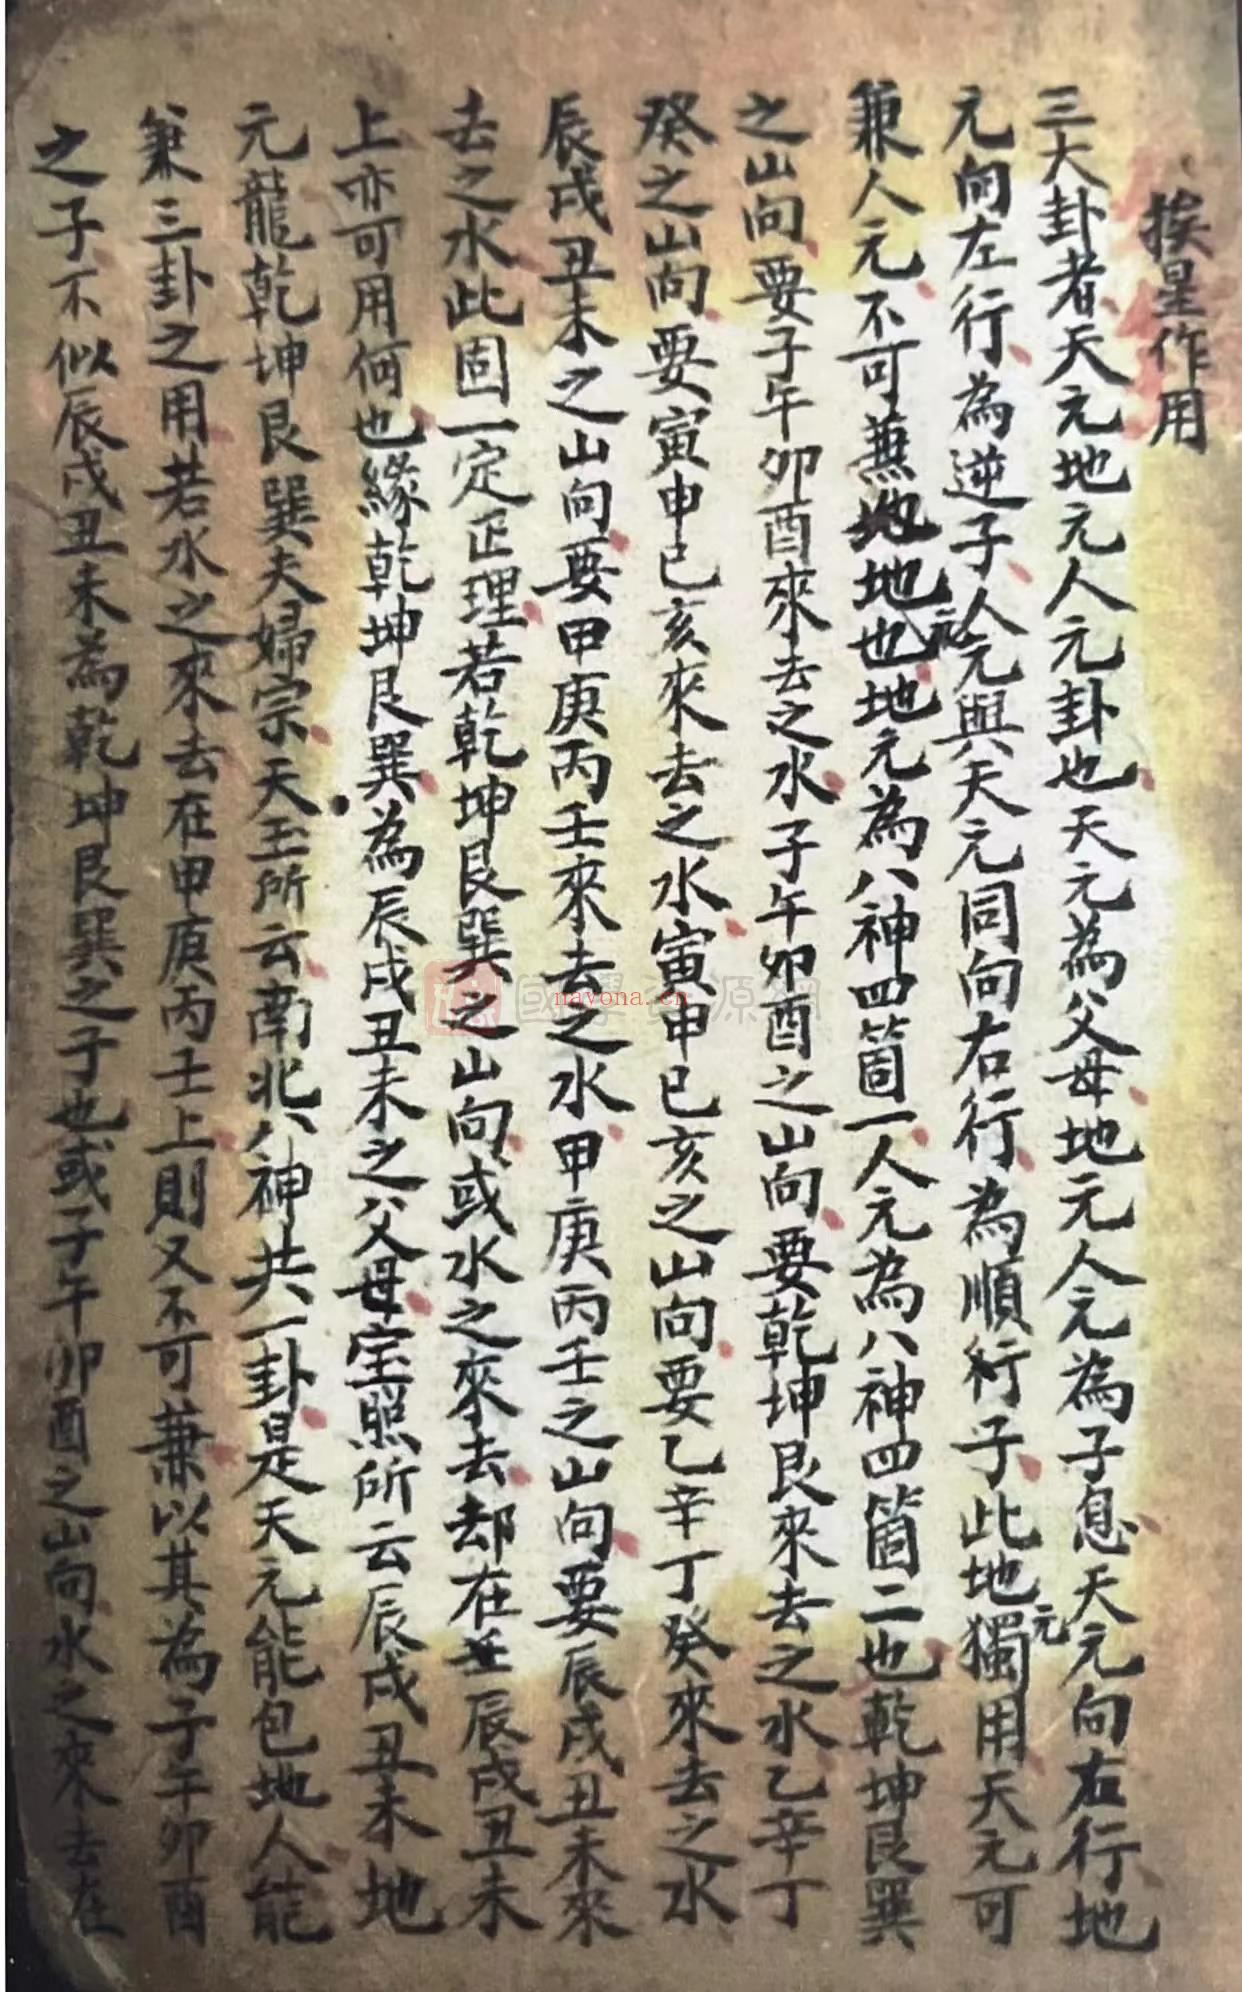 挨星作用
三大卦者天元地元人元卦也天元為父母地元人元為子息天元向右行地
元向左行為逆子人元與天元同向右行為順行子此地元獨用天元可
兼人元不可兼地地也地元為八神四箇一人元為八神四箇二也乾坤艮巽
之山向要子午卯酉來去之水子午卯酉之山向要乾坤艮巽來去之水乙辛丁
癸之山向要寅申巳亥來去之水寅申巳亥之山向要乙辛丁癸來去之水
辰戌丑未之山向要甲庚丙壬來去之水甲庚丙壬之山向要辰戌丑未來
去之水此固一定正理若乾坤艮巽之山向或水之來去却在辰戌丑未
上亦可用何也緣乾坤艮巽為辰戌丑未之父母宝照所云辰戌丑未地
元龍乾坤艮巽夫婦宗天玉所云南北八神共一卦是天元能包地人能
兼三卦之用若水之來去在甲庚丙壬上則又不可兼以其為子午卯酉
之子不似辰戌丑未為乾坤艮巽之子也或子午卯酉之山向水之來去在
國學資源網
nayona.cn